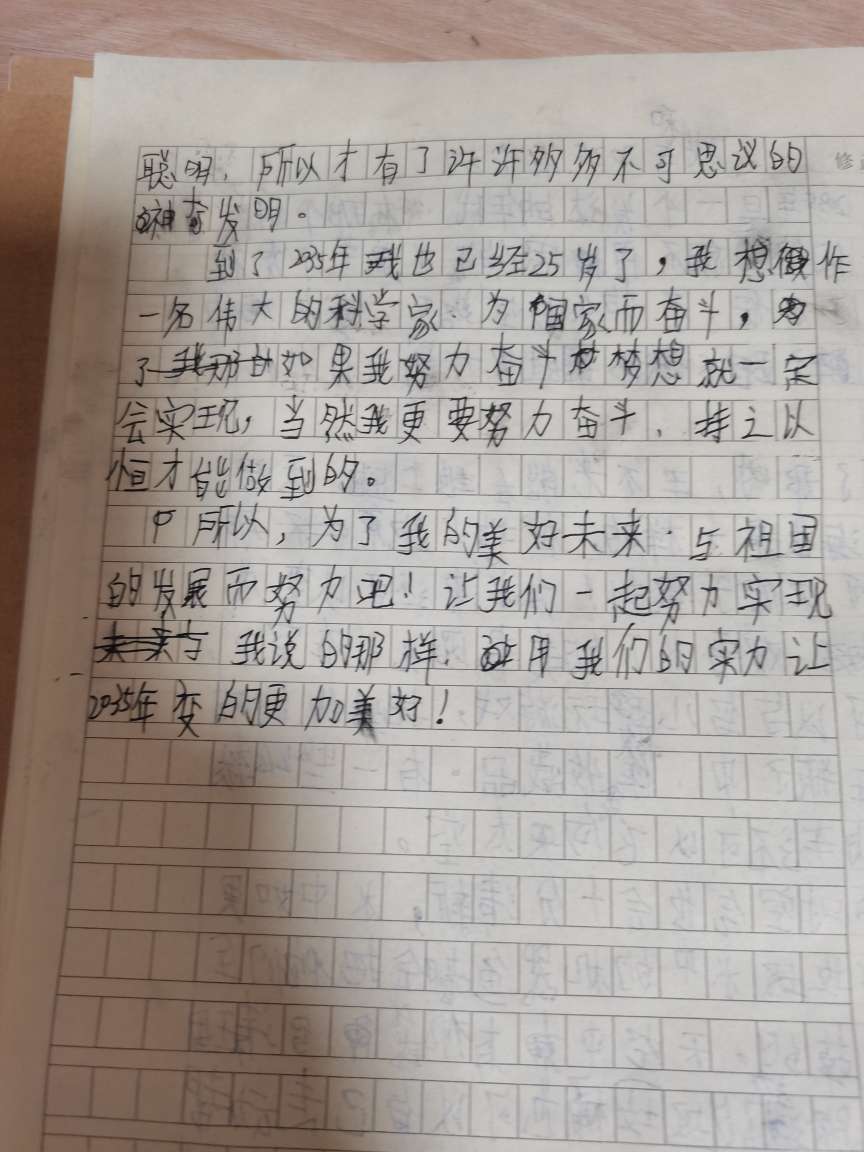 聪明，所以才有了许许多多不可思议的
神奇发明。
到了2035年我也已经25岁了，我想做作
一名伟大的科学家．为国家而奋斗，为
了如果我努力奋斗梦想就一定
会实现，当然我更要努力奋斗、持之以
恒才能做到的。
所以，为了我的美好未来·与祖国
的发展而努力吧！让我们一起努力实现
我说的那样．用我们的实力让
2035年变的更加美好！